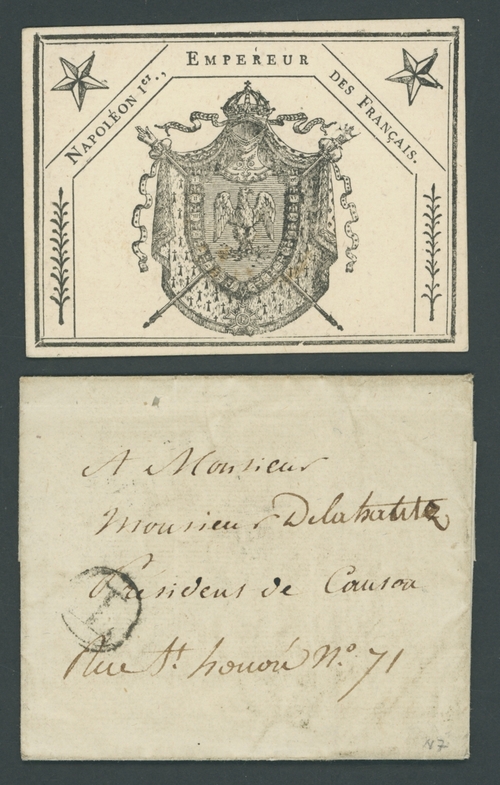 NAPOLÉON Ier., EMPEREUR DES FRANÇAIS.
A Monsieur
Monsieur Delahante
Président de Canton
Rue St. honoré No. 71
N7